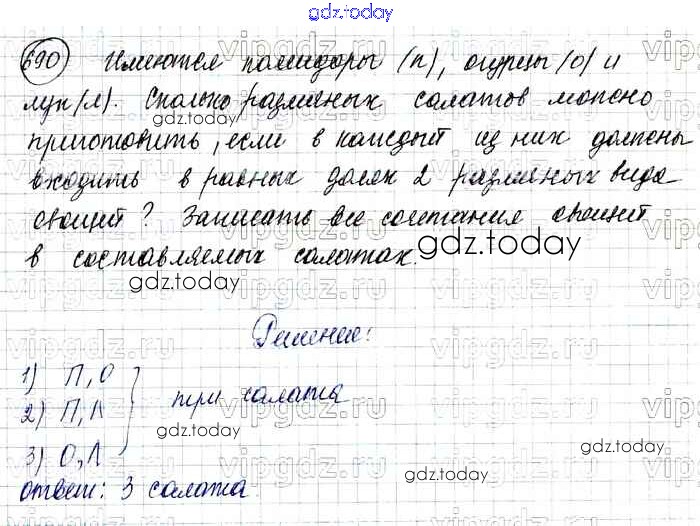 gdz.today
690 Имеются помидоры (п), огурцы (о) и
лук (л). Сколько различных салатов можно
приготовить, если в каждый из них должны
входить в равных долях 2 различных вида
овощей? Записать все сочетания овощей
в составляемых салатах.
Решение:
1) П, О
2) П, Л } три салата
3) О, Л
ответ: 3 салата
gdz.today
gdz.today
gdz.today
gdz.today
gdz.today
gdz.today
gdz.today
vipgdz.ru
vipgdz.ru
vipgdz.ru
vipgdz.ru